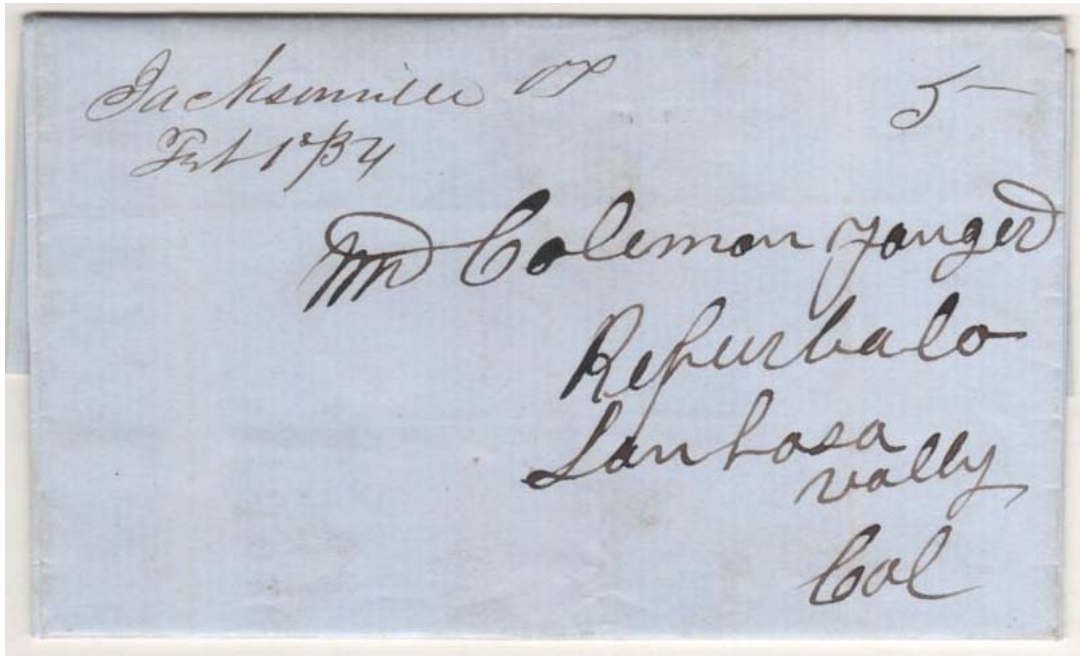 Jacksonville OT
5
Feb 1st/54
Mr Coleman younger
Repurbalo
San hosa
vally
Cal